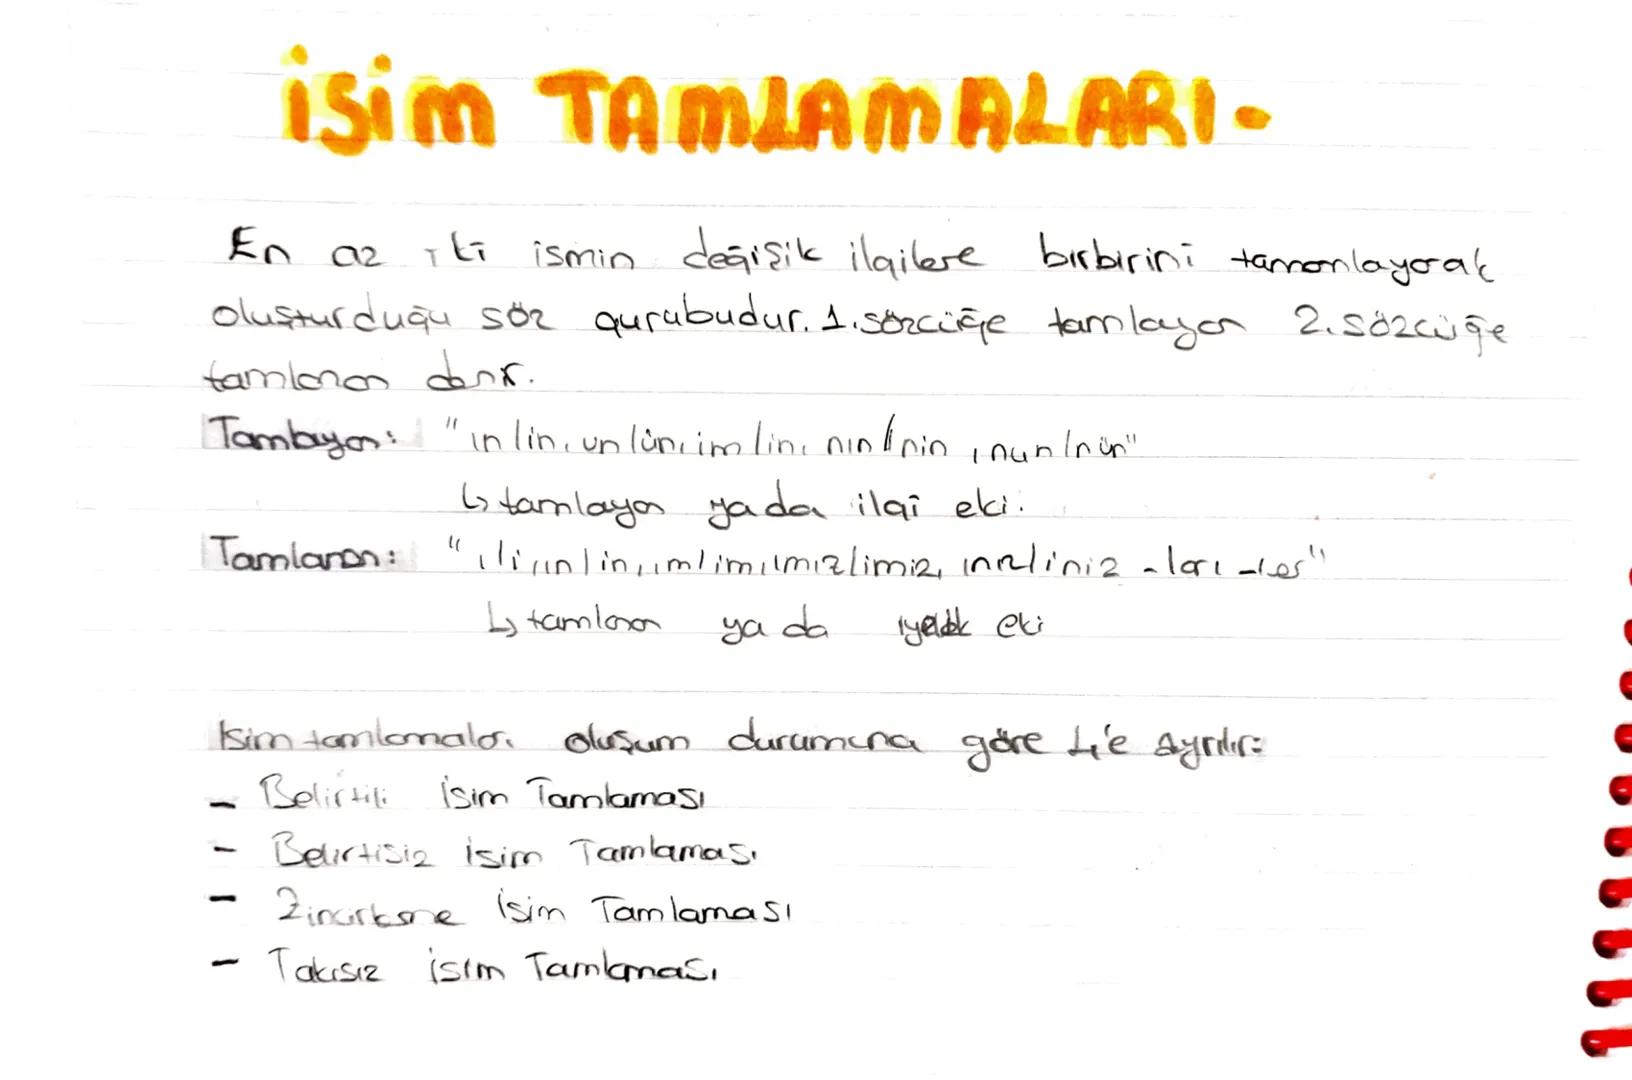 İSİM TAMLAMALARI-
En az iki ismin değişik ilgilere birbirini tamamlayarak
oluşturduğu söz gurubudur. 1.sözcüğe tamlayan 2.sözcüğe
tamlanan denir.
Tamlayan: "ın/in, un/ün, im/in, nın/nin, nun/nün"
↳ tamlayan yada ilgi eki.
Tamlanan: "ı/i, ın/in, ım/im, ımız/imiz, ınız/iniz -ları -ler"
↳ tamlanan ya da iyelik eki
İsim tamlamaları oluşum durumuna göre 4'e Ayrılır:
- Belirtili İsim Tamlaması
- Belirtisiz İsim Tamlaması
- Zincirleme İsim Tamlaması
- Takısız İsim Tamlaması